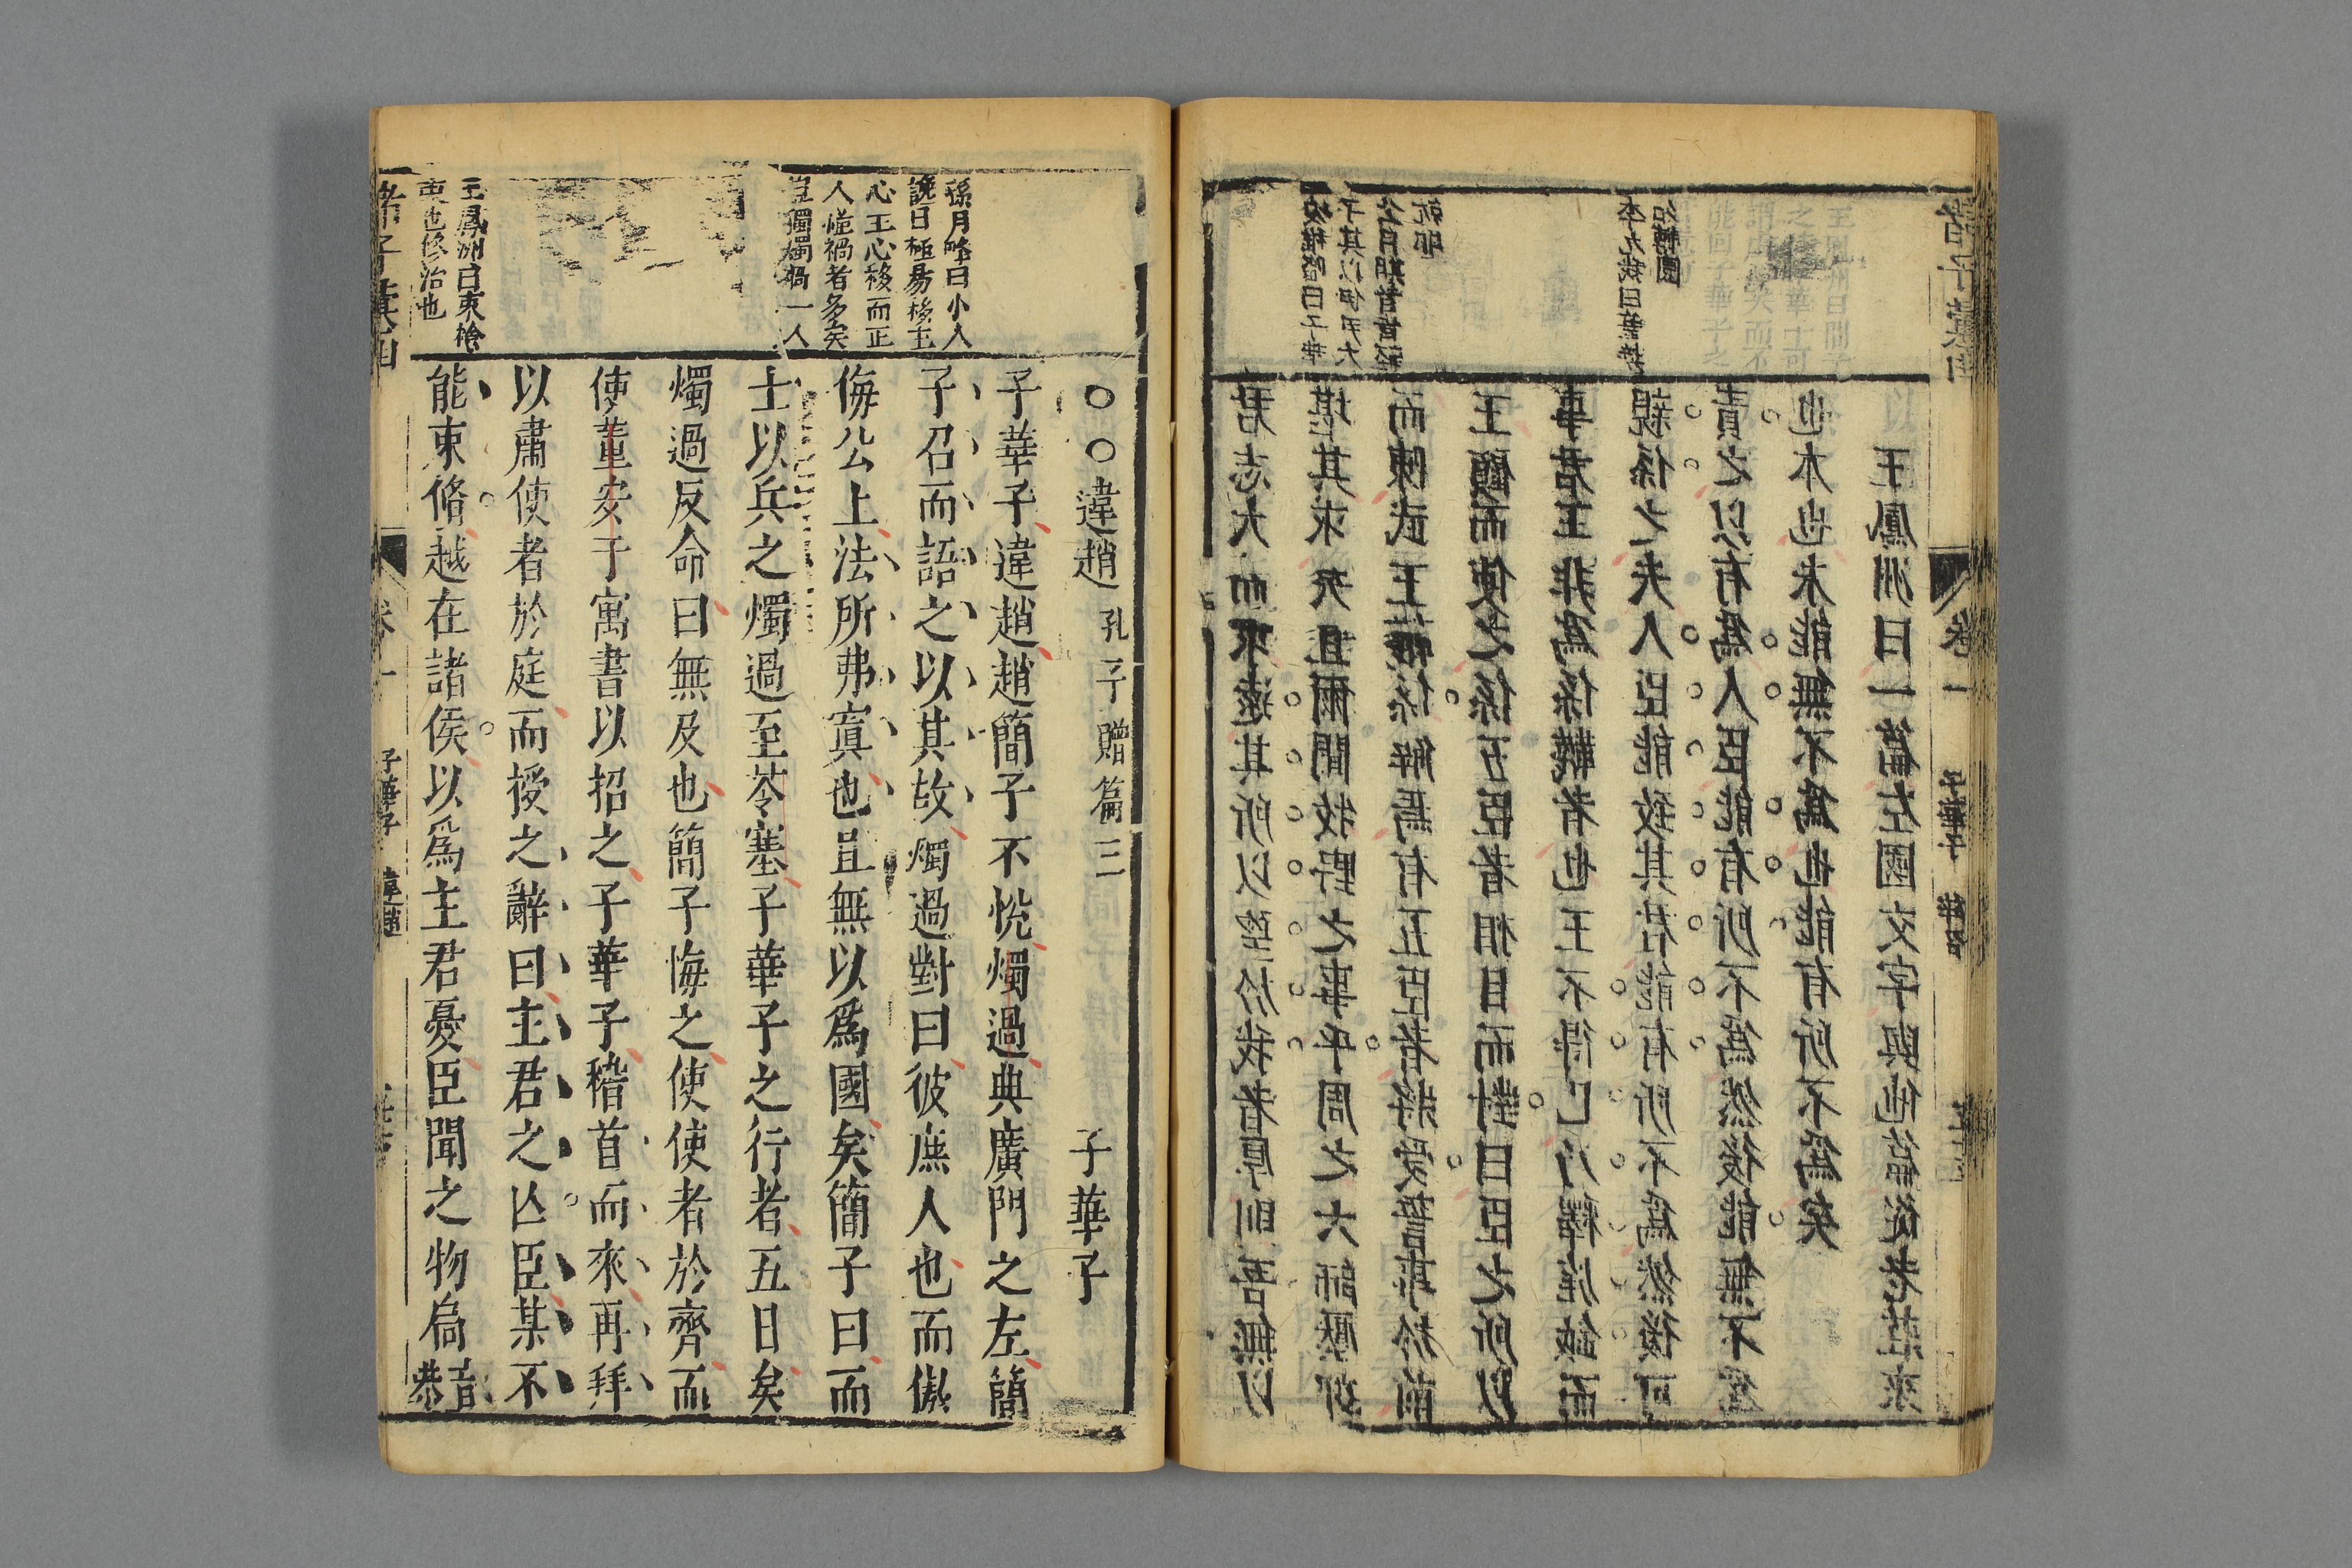 君志大而眾遠其所以望於我者厚則吾無以
堪其求矣且爾聞牧野之事乎周之大師壓郊
而陳武王韈係解焉有五臣者將受誓事於前
王顧而使之係五臣者相目而對曰臣之所以
事君王非爲係韈者也王不得已乃釋旄鉞而
親係之夫人臣能致其君能有所不爲然後可
責之以有爲人臣能有所不爲然後能無不爲
也未也未能無不爲也能有所不爲矣
王鳳洲曰一篇左國文字與他篇從老莊來
卷一
子華子
〇〇違趙 孔子贈篇三 子華子
子華子違趙趙簡子不悅燭過典廣門之左簡
子召而語之以其故燭過對曰彼庶人也而傲
侮公上法所弗寘也且無以爲國矣簡子曰而
士以兵之燭過至苓塞子華子之行者五日矣
燭過反命曰無及也簡子悔之使使者於齊而
使董安于寓書以招之子華子稽首而來再拜
以肅使者於庭而授之辭曰主君之亾臣某不
能束脩越在諸侯以爲主君憂臣聞之物扃音恭
孫月峰曰小人
讒曰極易移主
心王心移而正
人嬰禍者多矣
豈獨燭過一人
王鳳洲曰束檢
束也修治也
卷一
子華子 違趙